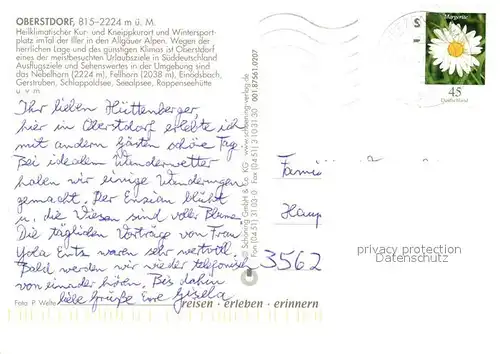 OBERSTDORF, 815-2224 m ü. M.
Heilklimatischer Kur- und Kneippkurort und Wintersport-
platz imTal der Iller in den Allgäuer Alpen. Wegen der
herrlichen Lage und des günstigen Klimas ist Oberstdorf
eines der meistbesuchten Urlaubsziele in Süddeutschland
Ausflugsziele und Sehenswertes in der Umgebung sind
das Nebelhorn (2224 m), Fellhorn (2038 m), Einödsbach,
Gerstruben, Schlappoldsee, Seealpsee, Rappenseehütte
u v m
Ihr lieben Hüttenberger
hier in Oberstdorf erlebte ich
mit andern Gästen schöne Tag
Bei idealem Wanderwetter
haben wir einige Wanderungen
gemacht. Der Enzian blüht
u. die Wiesen sind voller Blume
Die täglichen Vorträge von Frau
waren sehr wertvoll.
Bald werden wir wieder telefonisch
von einander hören. Bis dahin
liebe Grüße Eure Gisela
Foto P Welte
reisen · erleben · erinnern
© Schöning GmbH & Co. KG · www.schoening-verlag.de
Fon (04 51) 31 03-0 · Fax (04 51) 3 10 31 30 001.87561.0207
Margerite
45
Deutschland
Famili
Haup
3562
privacy protection
Datenschutz